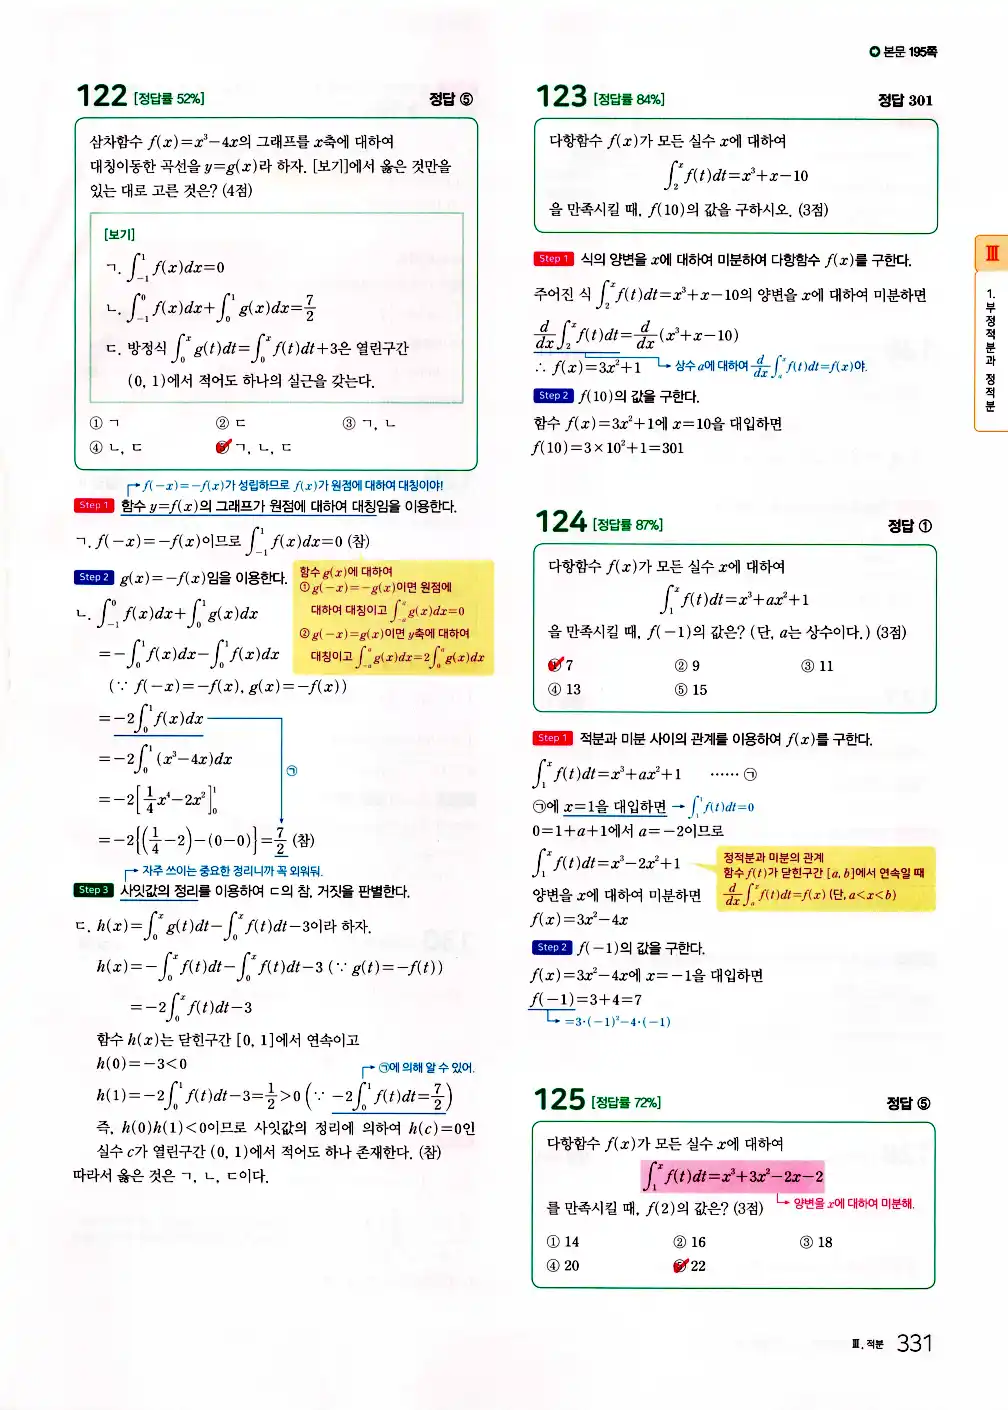 본문 195쪽
122 [정답률 52%] 정답 ⑤
삼차함수 f(x)=x³−4x의 그래프를 x축에 대하여
대칭이동한 곡선을 y=g(x)라 하자. [보기]에서 옳은 것만을
있는 대로 고른 것은? (4점)
[보기]
ㄱ. ∫₋₁¹ f(x)dx=0
ㄴ. ∫₋₁⁰ f(x)dx+∫₀¹ g(x)dx=7/2
ㄷ. 방정식 ∫₀ˣ g(t)dt=∫₀ˣ f(t)dt+3은 열린구간
(0, 1)에서 적어도 하나의 실근을 갖는다.
① ㄱ ② ㄷ ③ ㄱ, ㄴ
④ ㄴ, ㄷ ⑤ ㄱ, ㄴ, ㄷ
f(−x)=−f(x)가 성립하므로 f(x)가 원점에 대하여 대칭이야!
Step 1 함수 y=f(x)의 그래프가 원점에 대하여 대칭임을 이용한다.
ㄱ. f(−x)=−f(x)이므로 ∫₋₁¹ f(x)dx=0 (참)
Step 2 g(x)=−f(x)임을 이용한다.
함수 g(x)에 대하여
① g(−x)=−g(x)이면 원점에
대하여 대칭이고 ∫₋ₐᵃ g(x)dx=0
② g(−x)=g(x)이면 y축에 대하여
대칭이고 ∫₋ₐᵃ g(x)dx=2∫₀ᵃ g(x)dx
ㄴ. ∫₋₁⁰ f(x)dx+∫₀¹ g(x)dx
=−∫₀¹ f(x)dx−∫₀¹ f(x)dx
(∵ f(−x)=−f(x), g(x)=−f(x))
=−2∫₀¹ f(x)dx
=−2∫₀¹ (x³−4x)dx
㉠
=−2[1/4x⁴−2x²]₀¹
=−2{(1/4−2)−(0−0)}=7/2 (참)
자주 쓰이는 중요한 정리니까 꼭 외워둬.
Step 3 사잇값의 정리를 이용하여 ㄷ의 참, 거짓을 판별한다.
ㄷ. h(x)=∫₀ˣ g(t)dt−∫₀ˣ f(t)dt−3이라 하자.
h(x)=−∫₀ˣ f(t)dt−∫₀ˣ f(t)dt−3 (∵ g(t)=−f(t))
=−2∫₀ˣ f(t)dt−3
함수 h(x)는 닫힌구간 [0, 1]에서 연속이고
h(0)=−3<0
㉠에 의해 알 수 있어.
h(1)=−2∫₀¹ f(t)dt−3=1/2>0 (∵ −2∫₀¹ f(t)dt=7/2)
즉, h(0)h(1)<0이므로 사잇값의 정리에 의하여 h(c)=0인
실수 c가 열린구간 (0, 1)에서 적어도 하나 존재한다. (참)
따라서 옳은 것은 ㄱ, ㄴ, ㄷ이다.
123 [정답률 84%] 정답 301
다항함수 f(x)가 모든 실수 x에 대하여
∫₂ˣ f(t)dt=x³+x−10
을 만족시킬 때, f(10)의 값을 구하시오. (3점)
Step 1 식의 양변을 x에 대하여 미분하여 다항함수 f(x)를 구한다.
주어진 식 ∫₂ˣ f(t)dt=x³+x−10의 양변을 x에 대하여 미분하면
d/dx∫₂ˣ f(t)dt=d/dx(x³+x−10)
∴ f(x)=3x²+1 상수 a에 대하여 d/dx∫ₐˣ f(t)dt=f(x)야.
Step 2 f(10)의 값을 구한다.
함수 f(x)=3x²+1에 x=10을 대입하면
f(10)=3×10²+1=301
124 [정답률 87%] 정답 ①
다항함수 f(x)가 모든 실수 x에 대하여
∫₁ˣ f(t)dt=x³+ax²+1
을 만족시킬 때, f(−1)의 값은? (단, a는 상수이다.) (3점)
① 7 ② 9 ③ 11
④ 13 ⑤ 15
Step 1 적분과 미분 사이의 관계를 이용하여 f(x)를 구한다.
∫₁ˣ f(t)dt=x³+ax²+1 …… ㉠
㉠에 x=1을 대입하면 → ∫₁¹ f(t)dt=0
0=1+a+1에서 a=−2이므로
∫₁ˣ f(t)dt=x³−2x²+1
정적분과 미분의 관계
함수 f(t)가 닫힌구간 [a, b]에서 연속일 때
d/dx∫ₐˣ f(t)dt=f(x) (단, a<x<b)
양변을 x에 대하여 미분하면
f(x)=3x²−4x
Step 2 f(−1)의 값을 구한다.
f(x)=3x²−4x에 x=−1을 대입하면
f(−1)=3+4=7
=3·(−1)²−4·(−1)
125 [정답률 72%] 정답 ⑤
다항함수 f(x)가 모든 실수 x에 대하여
∫₁ˣ f(t)dt=x³+3x²−2x−2
양변을 x에 대하여 미분해.
를 만족시킬 때, f(2)의 값은? (3점)
① 14 ② 16 ③ 18
④ 20 ⑤ 22
Ⅲ
1. 부정적분과 정적분
Ⅲ. 적분 331